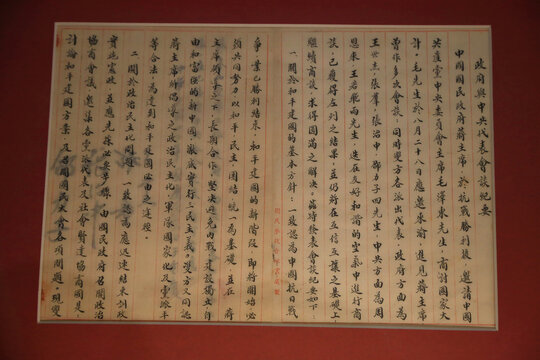 政府與中共代表會談紀要
中國國民政府蔣主席於抗戰勝利後，邀請中國
共產黨中央委員會主席毛澤東先生，商討國家大
計。毛先生於八月二十八日應邀來渝，進見蔣主席
曾作多次會談，同時雙方各派出代表，政府方面為
王世杰、張羣、張治中、邵力子四先生，中共方面為周
恩來、王若飛兩先生，迭在友好和諧的空氣中進行商
談，已獲得左列之結果，並仍將在互信互讓之基礎上
繼續商談，求得圓滿之解決。茲特發表會談紀要如下：
一、關於和平建國的基本方針：一致認為中國抗日戰
爭業已勝利結束，和平建國的新階段，即將開始，必
須共同努力，以和平、民主、團結、統一為基礎，並在蔣
主席領導之下，長期合作，堅決避免內戰，建設獨立、自
由和富強的新中國，徹底實行三民主義。雙方又同認
蔣主席所倡導之政治民主化、軍隊國家化及黨派平
等合法，為達到和平建國必由之途徑。
二、關於政治民主化問題：一致認為應迅速結束訓政
實施憲政，並應先採必要步驟，由國民政府召開政治
協商會議，邀集各黨派代表及社會賢達協商國是，
討論和平建國方案及召開國民大會各項問題。現雙